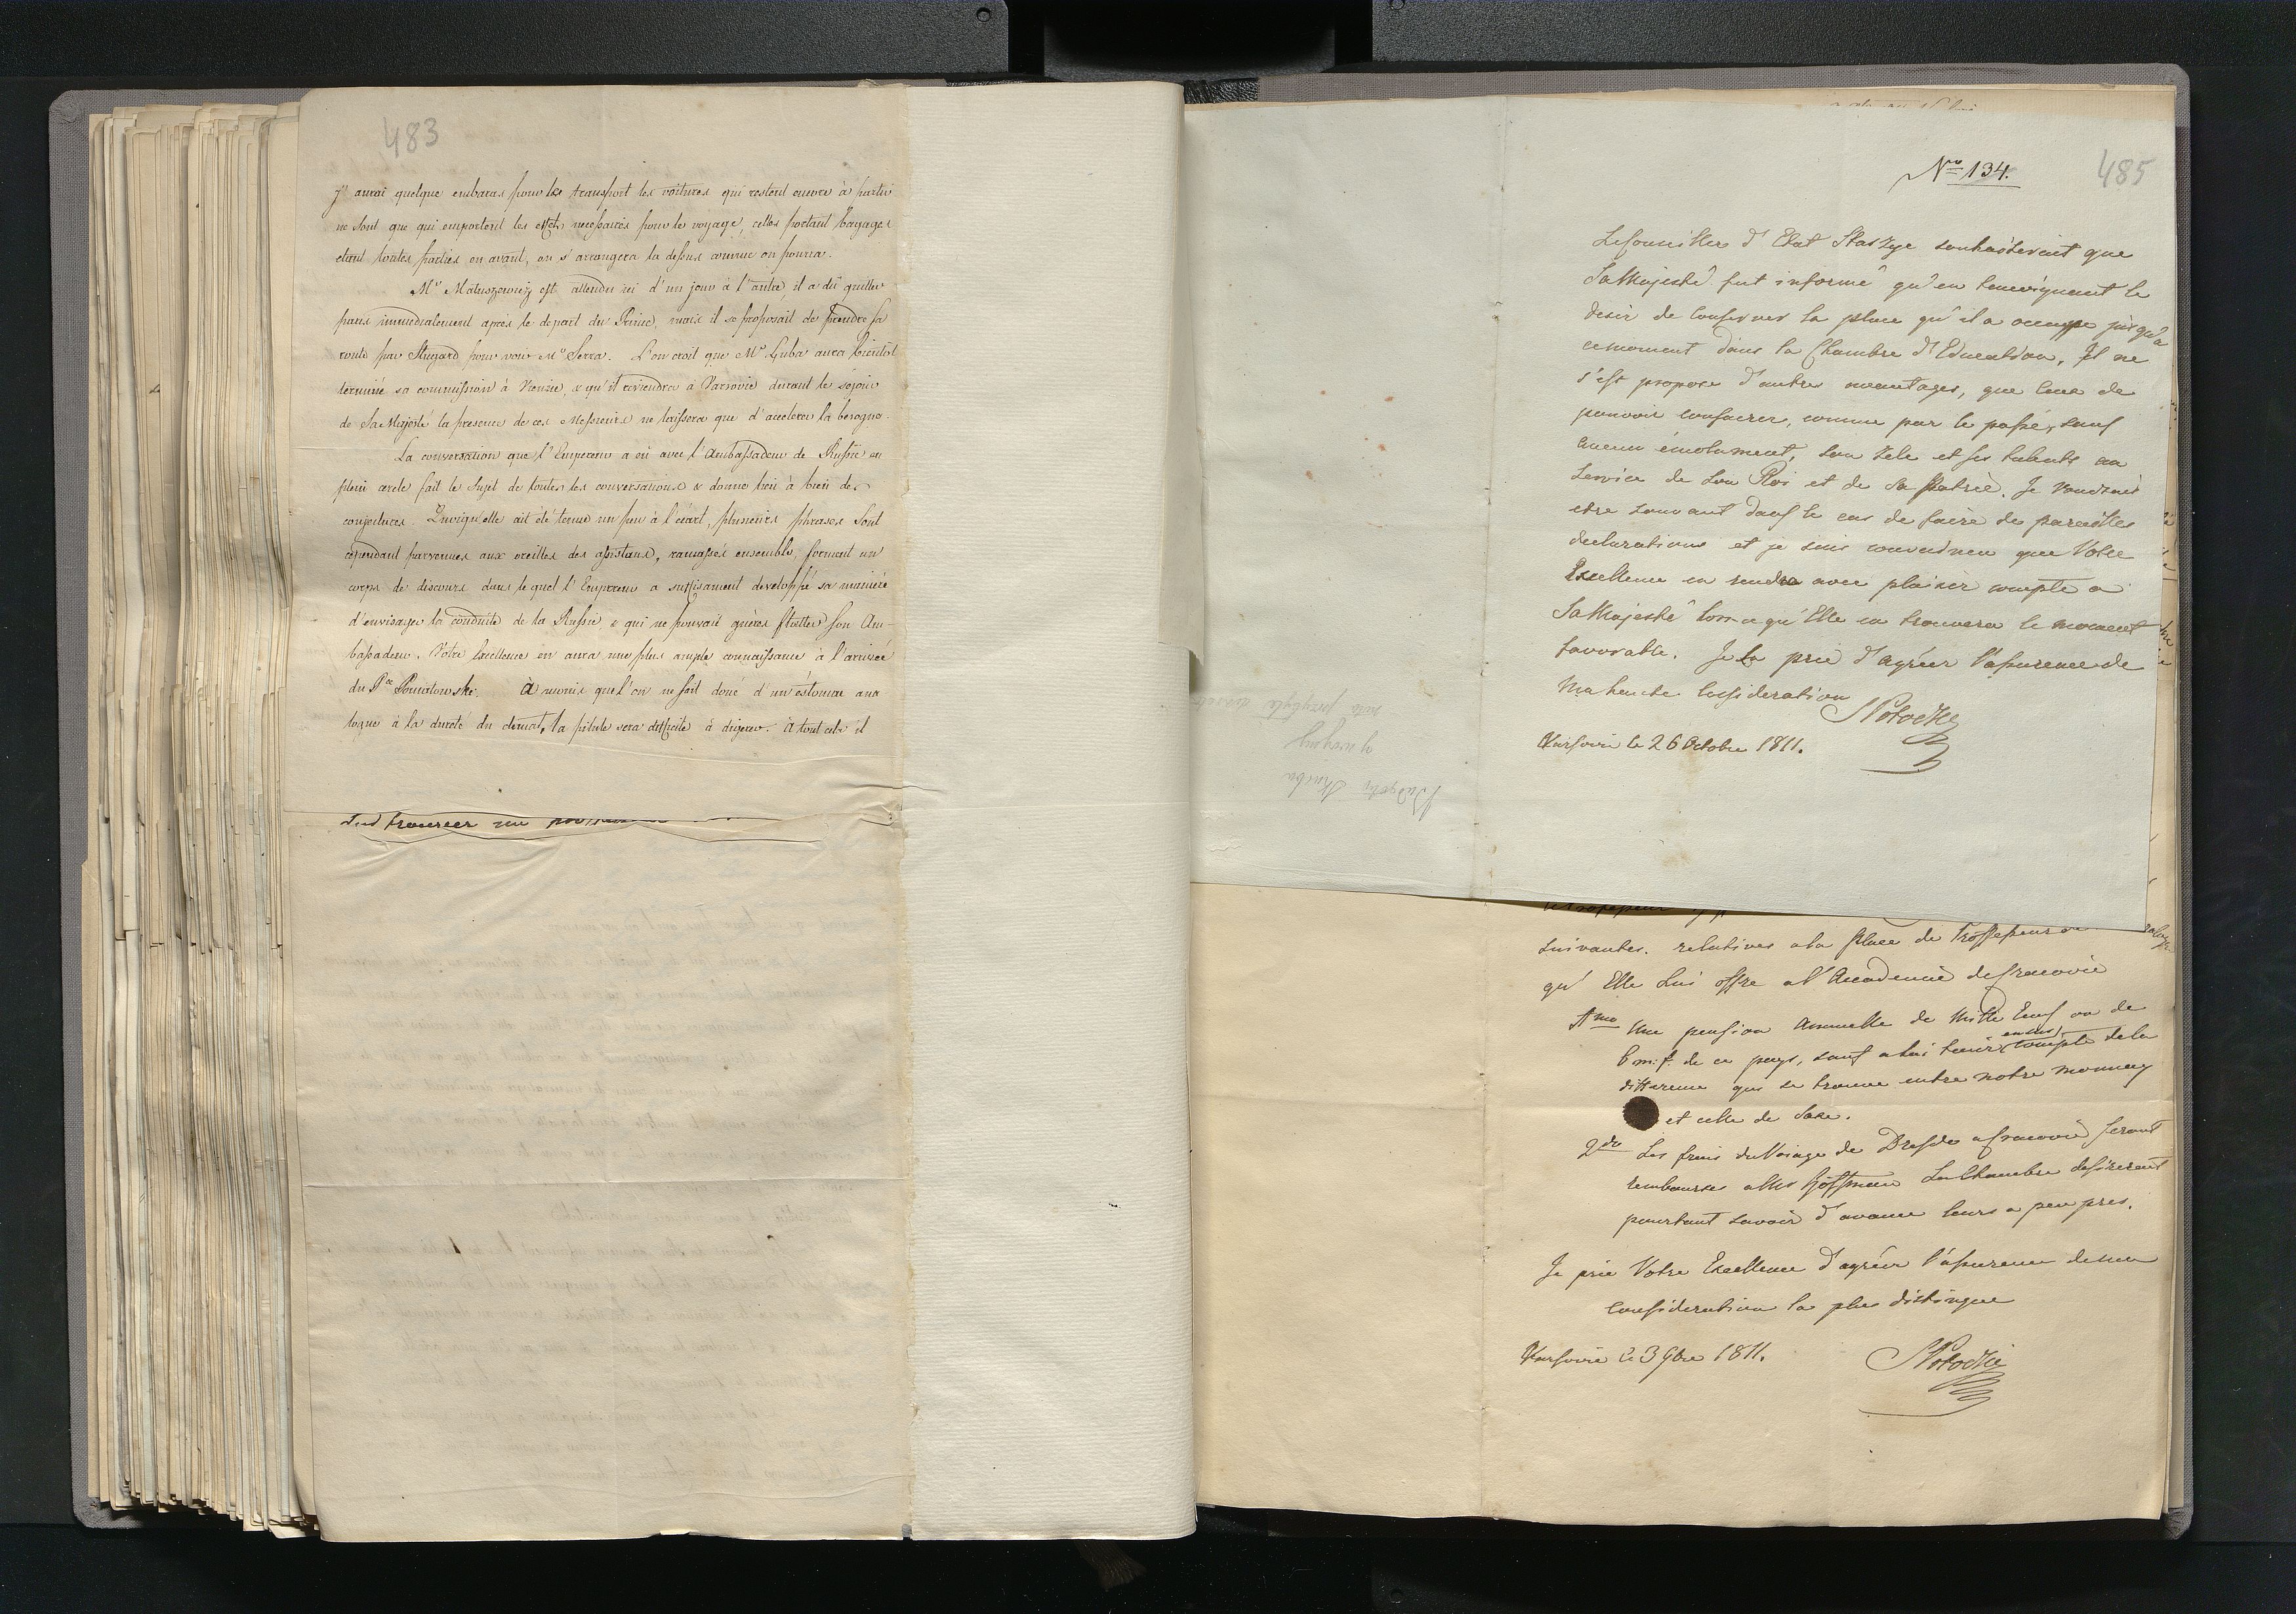 483
y aurai quelque embaras pour le transport les voitures qui restent encore à partir
ne sont que qui emportent les effets necessaires pour le voyage, celles portant bagages
etant toutes parties en avant, on s'arrangera la dessus comme on pourra.
Mr Matuszewicz est attendu ici d'un jour à l'autre, il a dû quitter
paris immediatement après le depart du Prince, mais il se proposait de prendre sa
route par Stugard pour voir Mr Serra. L'on croit que Mr Luba aura bientôt
terminé sa commission à & qu'il reviendra à Varsovie durant le séjour
de Sa Majesté la presence de ces Messieurs ne laissera que d'accelerer la besogne.
La conversation que l'Empereur a eû avec l'Ambassadeur de Russie en
plein cercle fait le sujet de toutes les conversations & donne lieu à bien des
conjectures. Quoiqu'elle ait été tenue un peu à l'écart, plusieurs phrases sont
cependant parvenues aux oreilles des assistans, ramassés ensemble, forment un
corps de discours dans lequel l'Empereur a suffisament developpé sa manière
d'envisager la conduite de la Russie & qui ne pouvait guères flatter son Am-
bassadeur. Votre Excellence en aura une plus ample connaissance à l'arrivée
du Pce Poniatowski. À moins que l'on ne soit doué d'un estomac ana
logue à la dureté du climat, la pilule sera difficile à digerer. à tout cela il
485
No 134.
Le Conseiller d'Etat Staszyc souhaiterait que
Sa Majesté fut informé qu'en temoignant le
desir de conserver la place qu'il a occuppe jusqu'a
ce moment dans la Chambre d'Education, Il ne
s'est propose d'autres avantages, que ceux de
pouvoir consacrer, comme par le passé, sans
aucun émolument, son zele et ses talents au
service de son Roi et de sa Patrie. Je voudrais
etre souvent dans le cas de faire de pareilles
declarations et je suis convaincu que Votre
Excellence en rendra avec plaisir compte a
Sa Majesté lorsqu'Elle en trouvera le moment
favorable. Je la prie d'agréer l'assurence de
Ma haute Consideration
SPotocki
Varsovie le 26 Octobre 1811.
suivantes. relatives a la place de Professeur
qu'Elle lui offre a l'Academie de Cracovie
1mo Une pension Annuelle de Mille Ecus ou de
6 m: f. de ce pays, sauf a lui tenir compte de la
en sus
difference qui se trouve entre notre monnay
et celle de Saxe.
2do Les frais du Voiage de Dresde a Cracovie seront
rembourses a Mr Hoffman La Chambre desirerait
pourtant savoir d'avance leurs a peu pres.
Je prie Votre Excellence d'agréer l'assurence de ma
consideration la plus distingue
Varsovie le 3 9bre 1811.
SPotocki